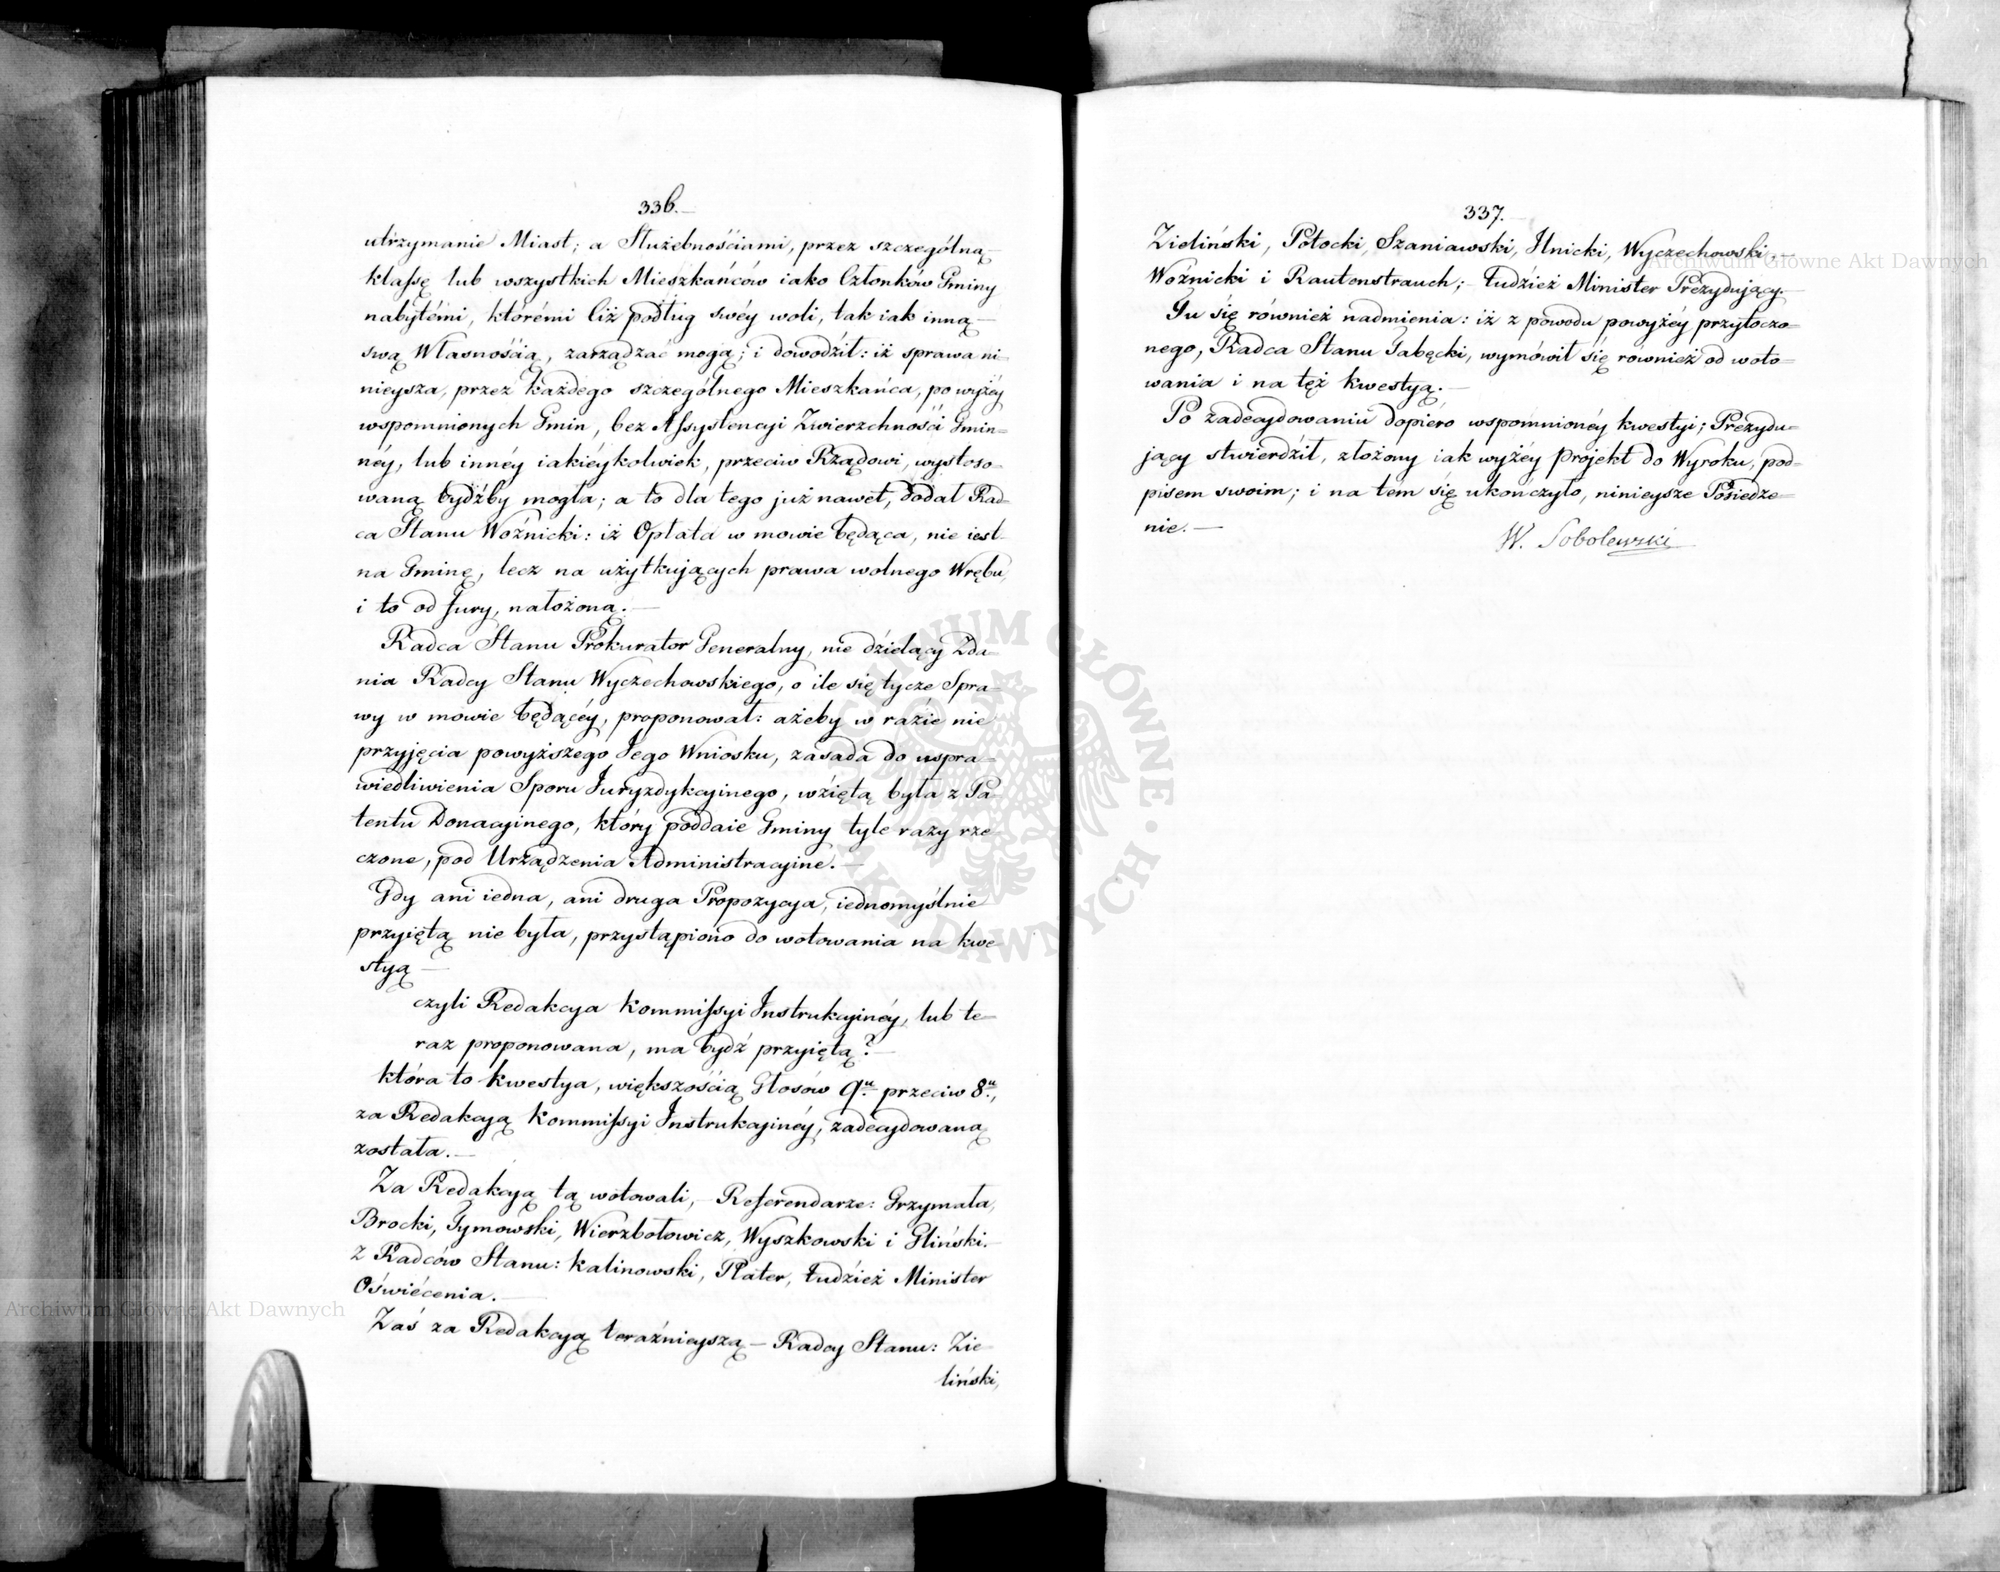 336.
utrzymanie Miast; a Służebnościami, przez szczególną
klassę lub wszystkich Mieszkańców iako Członków Gminy
nabytémi, którémi Ciż podług swéy woli, tak iak inną
swą Własnością, zarządzać mogą; i dowodził: iż sprawa ni-
nieysza, przez każdego szczególnego Mieszkańca, powyżéy
wspomnionych Gmin, bez Assystencyi Zwierzchności Gmin-
néy, lub innéy iakiéykolwiek, przeciw Rządowi, wystoso-
waną bydźby mogła; a to dla tego już nawet, dodał Rad-
ca Stanu Woźnicki: iż Opłata w mowie będąca, nie iest
na Gminę, lecz na użytkujących prawa wolnego Wrębu,
i to od fury, nałożoną.
Radca Stanu Prokurator Generalny, nie dzielący Zda-
nia Radcy Stanu Wyczechowskiego, o ile się tycze Spra-
wy w mowie będącéy, proponował: ażeby w razie nie
przyjęcia powyższego Jego Wniosku, zasada do uspra-
wiedliwienia Sporu Juryzdykcyinego, wziętą była z Pa-
tentu Donacyinego, który poddaie Gminy tyle razy rze-
czone, pod Urządzenia Administracyine.
Gdy ani iedna, ani druga Propozycya, iednomyślnie
przyiętą nie była, przystąpiono do wotowania na kwe-
styą
czyli Redakcya Kommissyi Instrukcyinéy, lub te-
raz proponowana, ma bydź przyiętą?
która to kwestya, większością Głosów 9u przeciw 8u,
za Redakcyą Kommissyi Instrukcyinéy, zadecydowaną
została.
Za Redakcyą tą wotowali, Referendarze: Grzymała,
Brocki, Tymowski, Wierzbołowicz, Wyszkowski i Gliński.
z Radców Stanu: Kalinowski, Plater, tudzież Minister
Oświécenia.
Zaś za Redakcyą teraźnieyszą – Radcy Stanu: Zie-
liński,
337.
Zieliński, Potocki, Szaniawski, Ilnicki, Wyczechowski,
Woźnicki i Rautenstrauch; tudzież Minister Prezydujący.
Tu się również nadmienia: iż z powodu powyżéy przytoczo-
nego, Radca Stanu Tabęcki, wymówił się rownież od woto-
wania i na tęż kwestyą.
Po zadecydowaniu dopiero wspomnionéy kwestyi; Prezydu-
jący stwierdził, złożony iak wyżéy projekt do Wyroku, pod-
pisem swoim; i na tem się ukończyło, ninieysze Posiedze-
nie.
W. Sobolewski
Archiwum Główne Akt Dawnych
Archiwum Główne Akt Dawnych
ARCHIWUM GŁÓWNE AKT DAWNYCH